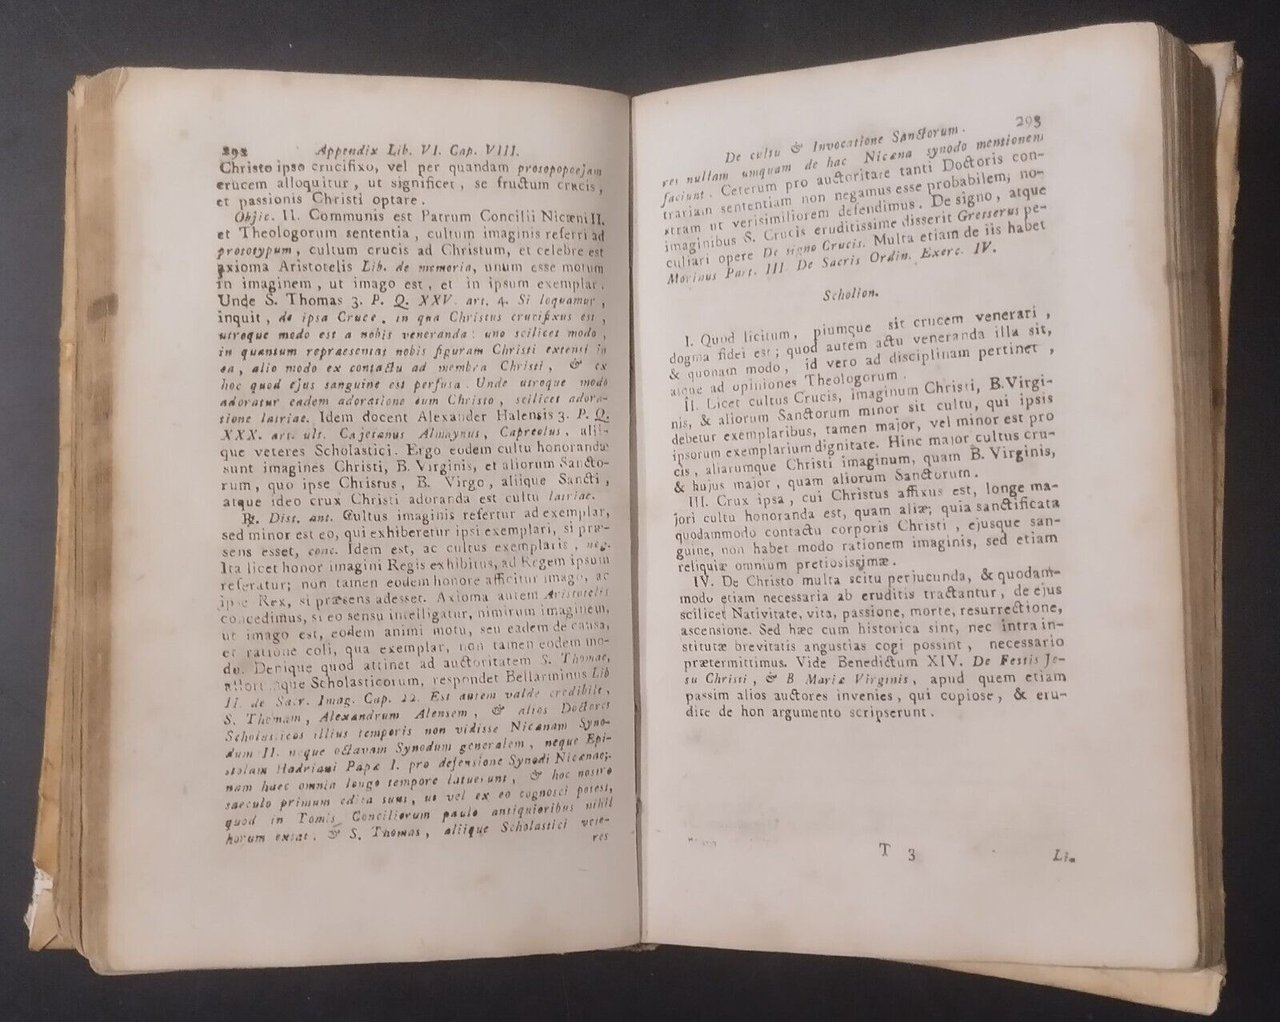 292 Appendix Lib. VI. Cap. VIII.
Christo ipso crucifixo, vel per quandam prosopopoejam
crucem alloquitur, ut significet, se fructum crucis,
et passionis Christi optare.
Objic. II. Communis est Patrum Concilii Nicæni II.
et Theologorum sententia, cultum imaginis referri ad
prototypum, cultum crucis ad Christum, et celebre est
axioma Aristotelis Lib. de memoria, unum esse motum
in imaginem, ut imago est, et in ipsum exemplar.
Unde S. Thomas 3. P. Q. XXV. art. 4. Si loquamur,
inquit, de ipsa Cruce, in qua Christus crucifixus est,
utroque modo est a nobis veneranda: uno scilicet modo,
in quantum repraesentat nobis figuram Christi extensi in
ea, alio modo ex contactu ad membra Christi, & ex
hoc quod ejus sanguine est perfusa. Unde utroque modo
adoratur eadem adoratione cum Christo, scilicet adora-
tione latriae. Idem docent Alexander Halensis 3. P. Q.
XXX. art. ult. Cajetanus Almaynus, Capreolus, alii-
que veteres Scholastici. Ergo eodem cultu honorandæ
sunt imagines Christi, B. Virginis, et aliorum Sancto-
rum, quo ipse Christus, B. Virgo, aliique Sancti,
atque ideo crux Christi adoranda est cultu latriae.
℞. Dist. ant. Cultus imaginis refertur ad exemplar,
sed minor est eo, qui exhiberetur ipsi exemplari, si præ-
sens esset, conc. Idem est, ac cultus exemplaris, neg.
Ita licet honor imagini Regis exhibitus, ad Regem ipsum
referatur; non tamen eodem honore afficitur imago, ac
ipse Rex, si præsens adesset. Axioma autem Aristotelis
concedimus, si eo sensu intelligatur, nimirum imaginem,
ut imago est, eodem animi motu, seu eadem de causa,
et ratione coli, qua exemplar, non tamen eodem mo-
do. Denique quod attinet ad auctoritatem S. Thomae,
aliorumque Scholasticorum, respondet Bellarminus Lib
II. de Sacr. Imag. Cap. 22. Est autem valde credibile,
S. Thomam, Alexandrum Alensem, & alios Doctores
Scholasticos illius temporis non vidisse Nicænam Syno-
dum II. neque octavam Synodum generalem, neque Epi-
stolam Hadriani Papæ I. pro defensione Synodi Nicænae;
nam haec omnia longo tempore latuerunt, & hoc nostro
saeculo primum edita sunt, ut vel ex eo cognosci potest,
quod in Tomis Conciliorum paulo antiquioribus nihil
horum extat. & S. Thomas, aliique Scholastici vete-
res
De cultu & Invocatione Sanctorum. 293
res nullam umquam de hac Nicæna synodo mentionem
faciunt. Ceterum pro auctoritate tanti Doctoris con-
trariam sententiam non negamus esse probabilem, no-
stram ut verisimiliorem defendimus. De signo, atque
imaginibus S. Crucis eruditissime disserit Gretserus pe-
culiari opere De signo Crucis. Multa etiam de iis habet
Morinus Part. III. De Sacris Ordin. Exerc. IV.
Scholion.
I. Quod licitum, piumque sit crucem venerari,
dogma fidei est; quod autem actu veneranda illa sit,
& quonam modo, id vero ad disciplinam pertinet,
atque ad opiniones Theologorum.
II. Licet cultus Crucis, imaginum Christi, B. Virgi-
nis, & aliorum Sanctorum minor sit cultu, qui ipsis
debetur exemplaribus, tamen major, vel minor est pro
ipsorum exemplarium dignitate. Hinc major cultus cru-
cis, aliarumque Christi imaginum, quam B. Virginis,
& hujus major, quam aliorum Sanctorum.
III. Crux ipsa, cui Christus affixus est, longe ma-
jori cultu honoranda est, quam aliæ; quia sanctificata
quodammodo contactu corporis Christi, ejusque san-
guine, non habet modo rationem imaginis, sed etiam
reliquiæ omnium pretiosissimæ.
IV. De Christo multa scitu perjucunda, & quodam-
modo etiam necessaria ab eruditis tractantur, de ejus
scilicet Nativitate, vita, passione, morte, resurrectione,
ascensione. Sed hæc cum historica sint, nec intra in-
stitutæ brevitatis angustias cogi possint, necessario
prætermittimus. Vide Benedictum XIV. De Festis Je-
su Christi, & B Mariæ Virginis, apud quem etiam
passim alios auctores invenies, qui copiose, & eru-
dite de hon argumento scripserunt.
T 3 Li-